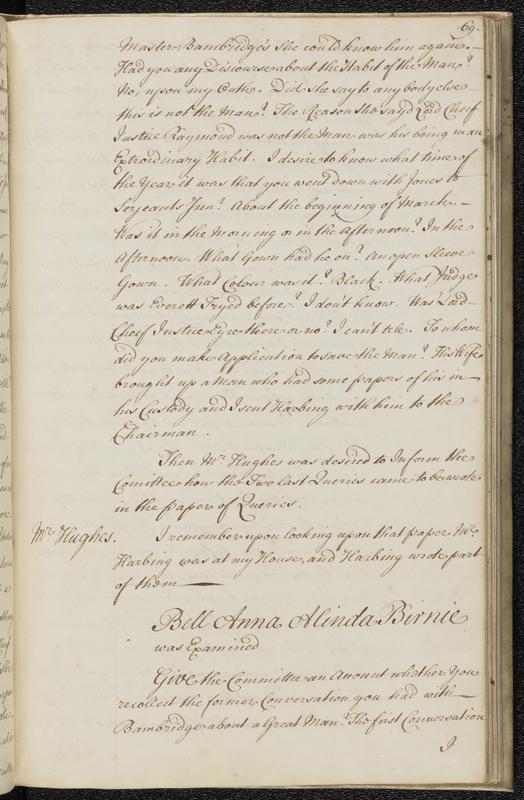 69.
Master Bambridge's she could know him again.
Had you any Discourse about the Habit of the Man?
No, upon my Oath. Did she say to any body else
this is not the Man? The Reason she sayd Lord Cheif
Justice Raymond was not the Man was his being in an
Extrordinary Habit. I desire to know what time of
the Year it was that you went down with Jones to
Serjeants Inn? About the beginning of March.
Was it in the Morning or in the Afternoon? In the
Afternoon. What Gown had he on? An open Sleeve
Gown. What Colour was it? Black. What Judge
was Everett Tryed before? I don't know. Was Lord
Cheif Justice Eyre there or no? I can't tele. To whom
did you make Application to save the Man? His Wife
brought up a Man who had some papers of his in
his Custody and I sent Harbing with him to the
Chairman.
Then Mr. Hughes was desired to Inform the
Comittee how the Two last Queries came to be wrote
in the paper of Queries.
Mr. Hughes.
I remember upon looking upon that paper Mr.
Harbing was at my House, and Harbing wrote part
of them
Bell Anna Alinda Birnie
was Examined
Give the Committee an Account whether You
recolect the former Conversation you had with
Bambridge about a Great Man? The first Conversation
I